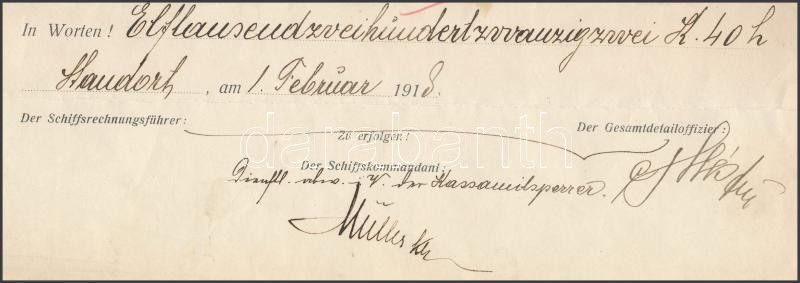 In Worten! Elftausendzweihundertzwanzigzwei K. 40 h
Standort, am 1. Februar 1918.
Der Schiffsrechnungsführer: Der Gesamtdetailoffizier:
Zu erfolgen!
Der Schiffskommandant:
Dienstl. abw. i. V. der Kassamitsperrer.
Müller
darabanth